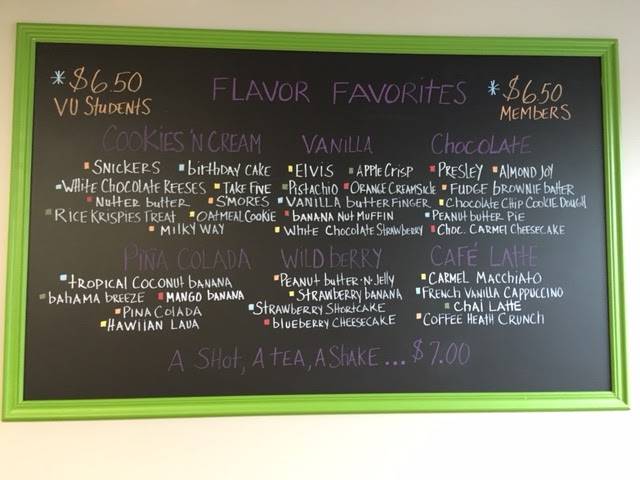 * $6.50
VU STUDENTS
FLAVOR FAVORITES
* $6.50
MEMBERS
COOKIES 'N CREAM
SNICKERS birthday CAKE
White Chocolate Reeses TAKE FIVE
Nutter butter S'MORES
RICE KRISPIES TREAT OATMEAL COOKIE
MILKY WAY
VANILLA
ELVIS APPLE CRISP
Pistachio ORANGE CREAMSICLE
VANILLA butterFINGER
bANANA NUT MUFFIN
White Chocolate Strawberry
CHOCOLATE
PRESLEY ALMOND JOY
FUDGE bROWNIE bATTER
Chocolate Chip Cookie Dough
PEANUT bUTTER PIE
Choc. CARMEL CHEESECAKE
PIÑA COLADA
TROPICAL COCONUT bANANA
bAHAMA BREEZE MANGO bANANA
PINA COLADA
HAWIIAN LAVA
WILD bERRY
PEANUT bUTTER-N-JELLY
STRAWBERRY bANANA
STRAWBERRY SHORTCAKE
bLUEBERRY CHEESECAKE
CAFÉ LATTE
CARMEL MACCHIATO
FRENCH VANILLA CAPPUCCINO
CHAI LATTE
COFFEE HEATH CRUNCH
A SHOT, A TEA, A SHAKE... $7.00